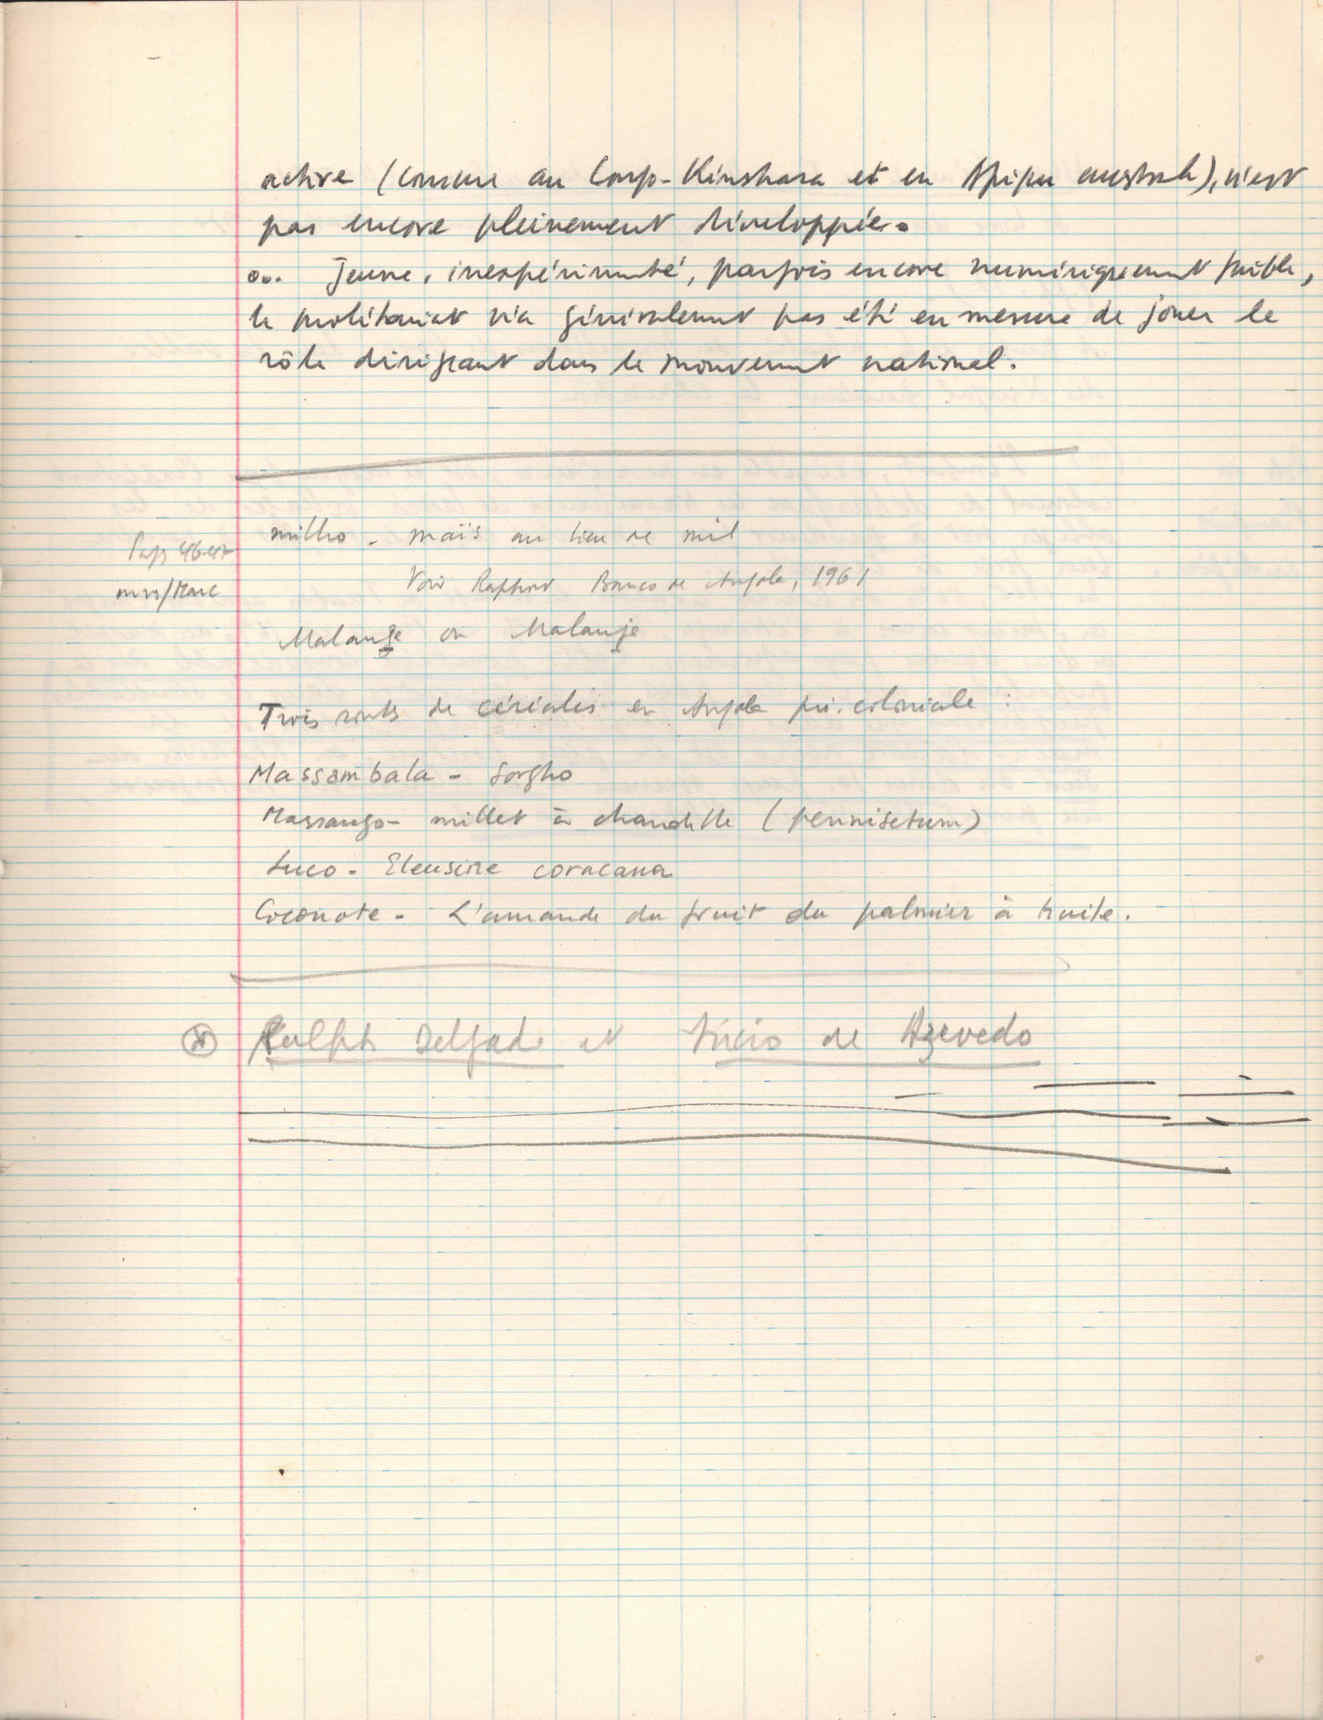 active (comme au Congo-Kinshasa et en Afrique australe), n'est
pas encore pleinement développée.
... Jeune, inexpérimenté, parfois encore numériquement faible,
le prolétariat n'a généralement pas été en mesure de jouer le
rôle dirigeant dans le mouvement national.
milho - maïs au lieu de mil
Voir Rapport Banco de Angola, 1961
mvs/Marc
Malange ou Malanje
Trois sortes de céréales en Angola pré-coloniale :
Massambala - Sorgho
Massango - millet à chandelle (pennisetum)
Luco - Eleusine coracana
Coconote - L'amande du fruit du palmier à huile.
Ralph Delgado et Lúcio de Azevedo